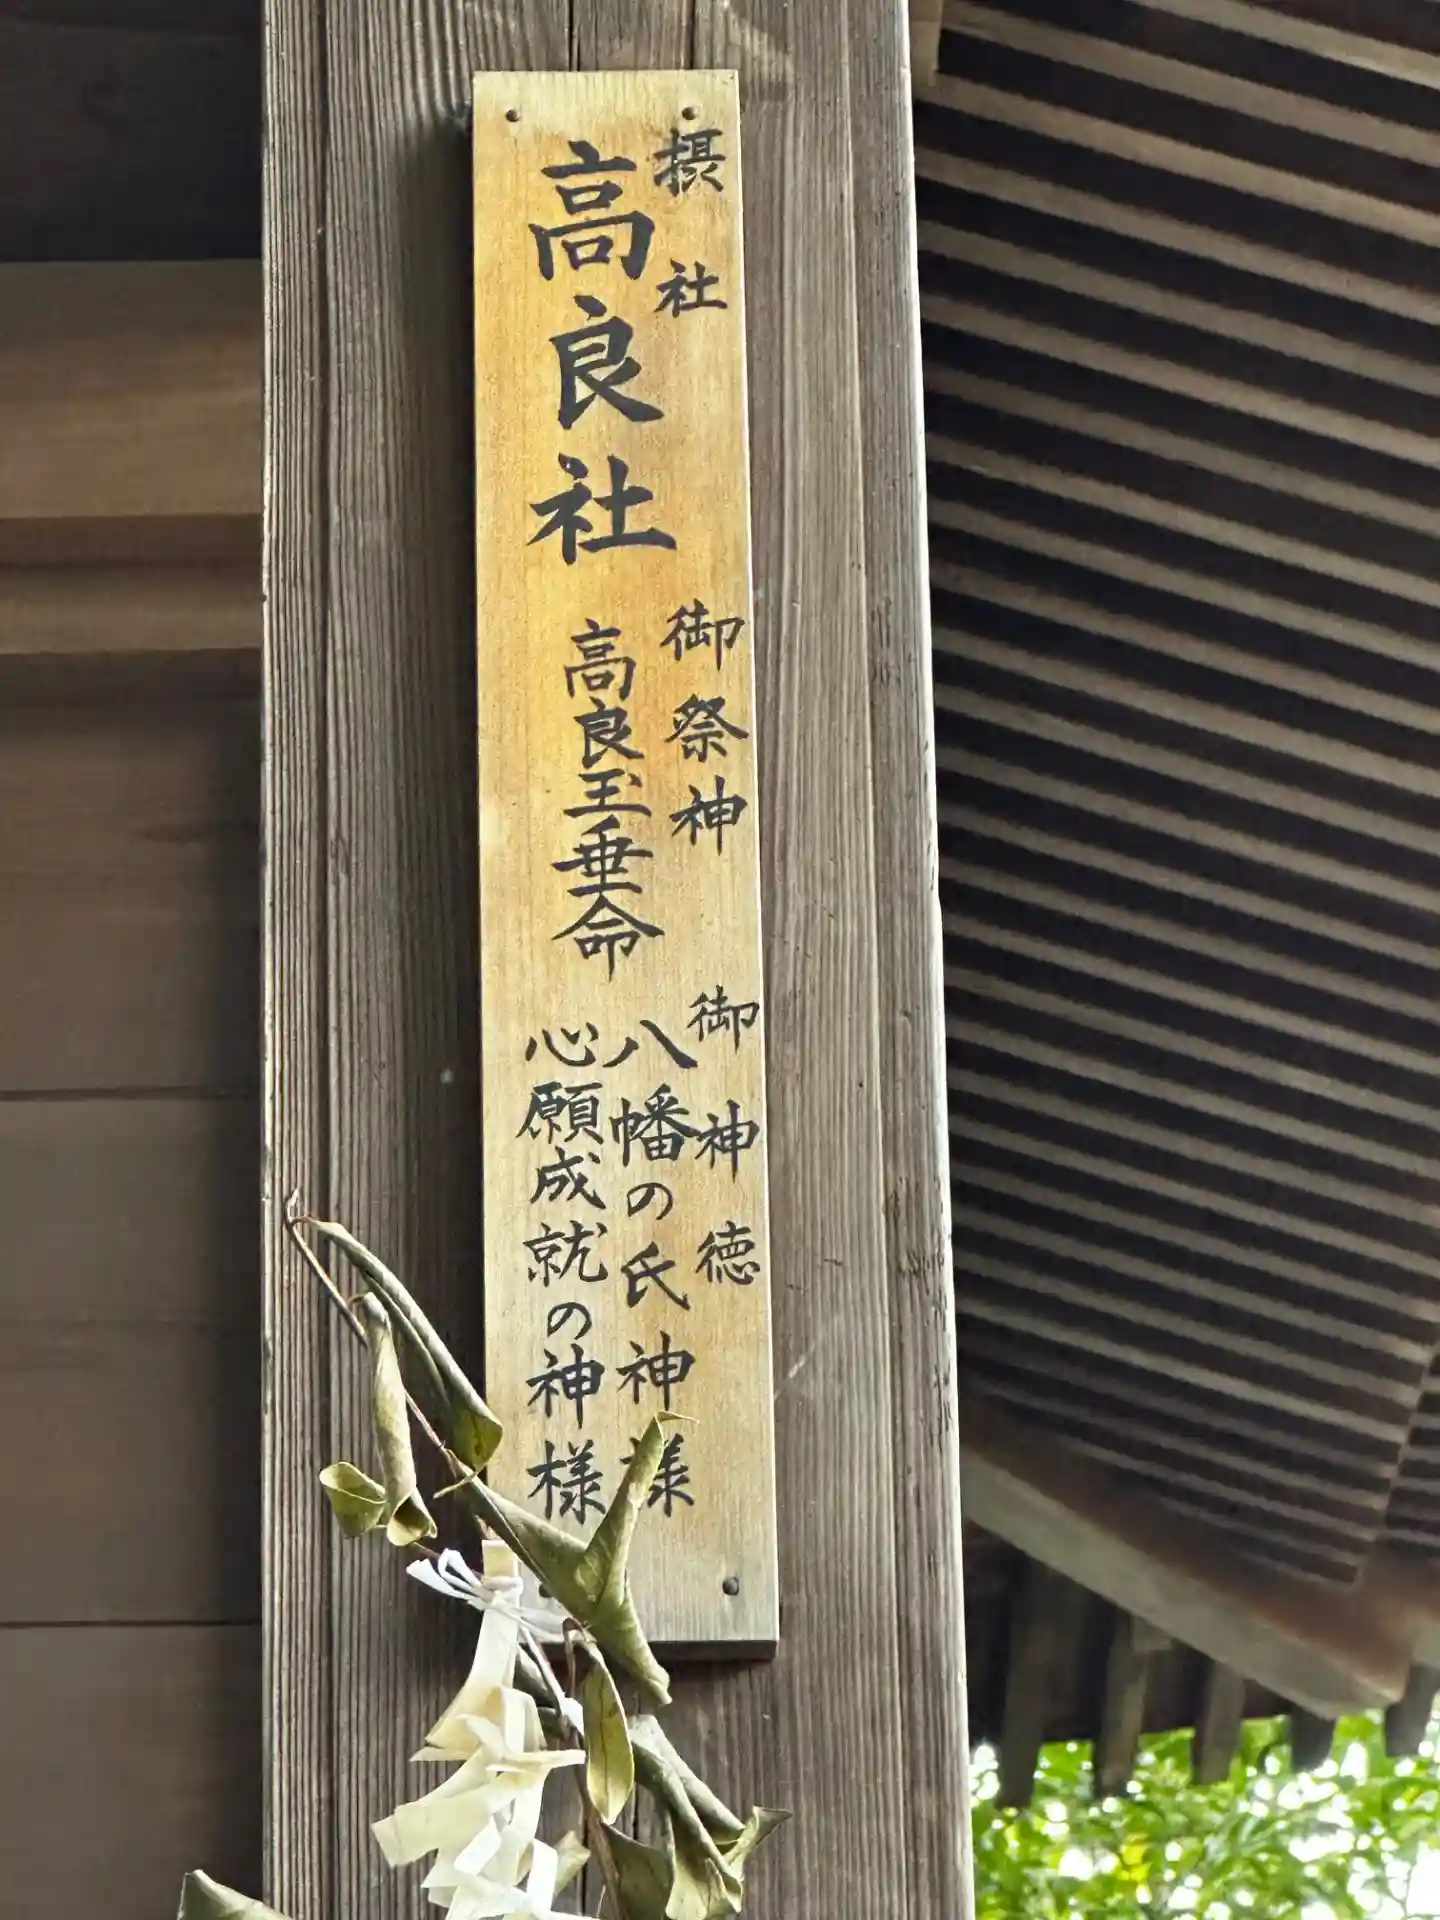 摂社
高良社
御祭神
高良玉垂命
御神徳
八幡の氏神様
心願成就の神様